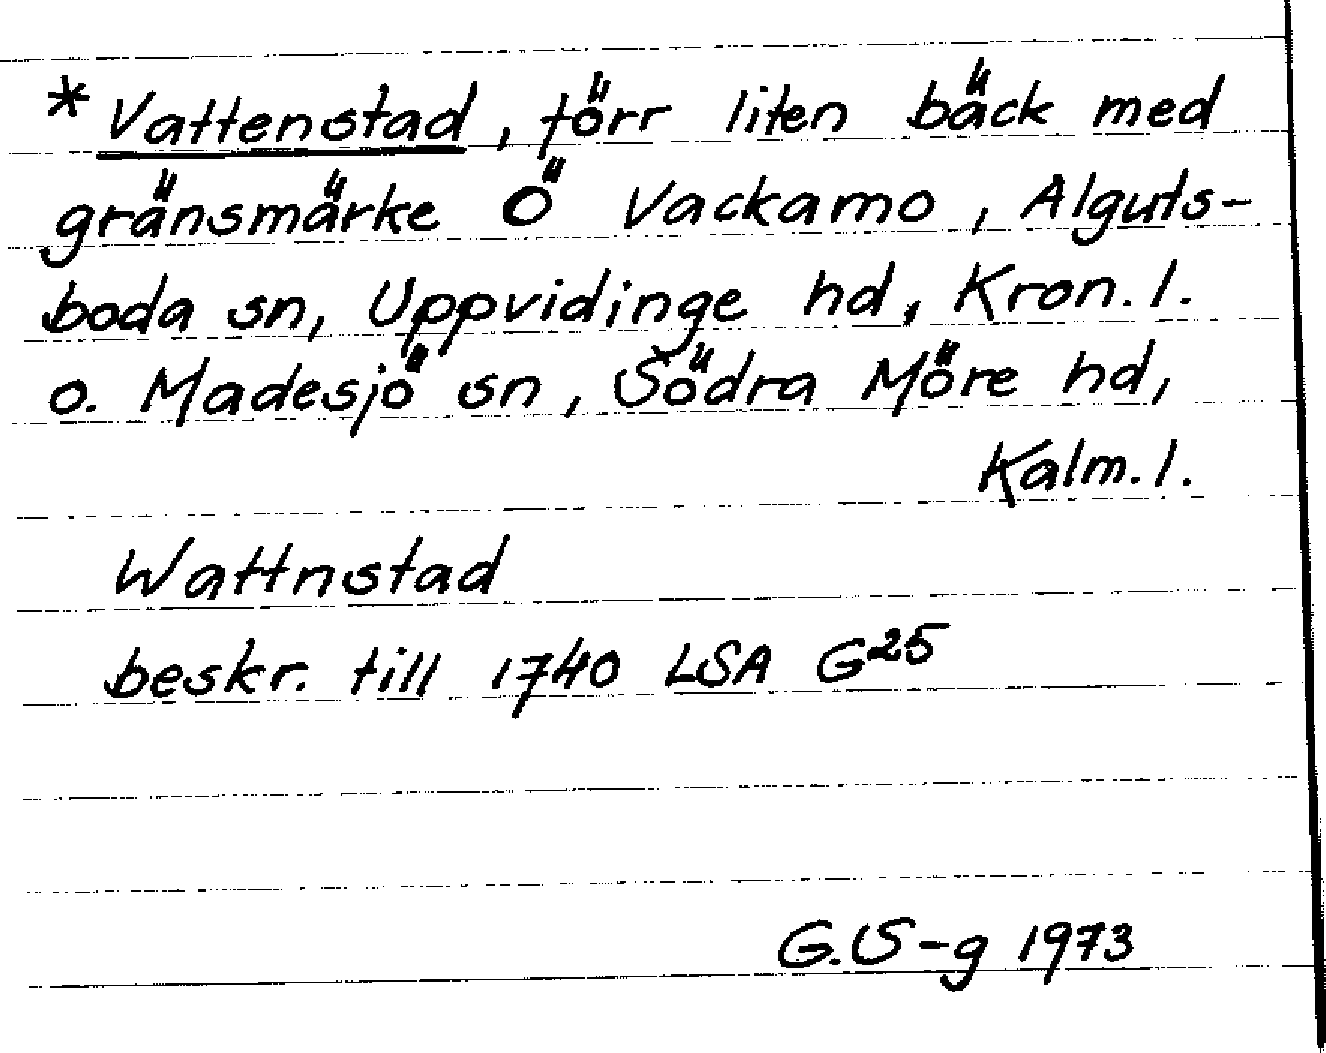 * Vattenstad, förr liten bäck med
gränsmärke Ö Vackamo, Alguts-
boda sn, Uppvidinge hd, Kron. l.
o. Madesjö sn, Södra Möre hd,
Kalm. l.
Wattnstad
beskr. till 1740 LSA G25
G.S-g 1973